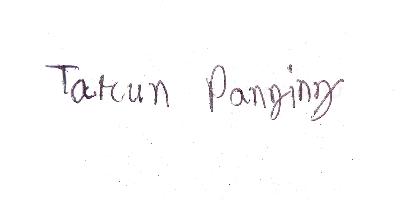 Takun Panging